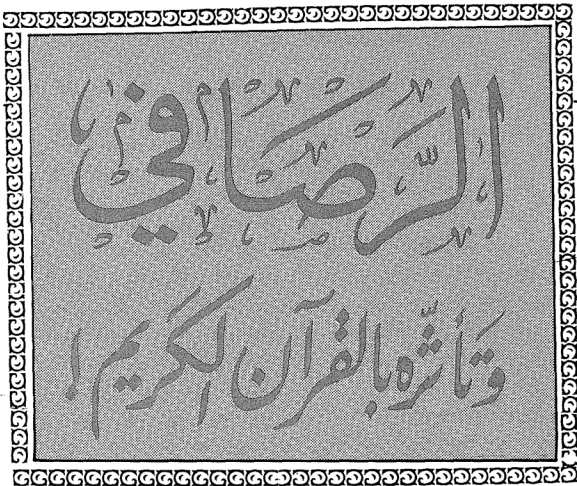 الرّصافي
وتأثّره بالقرآن الكريم !